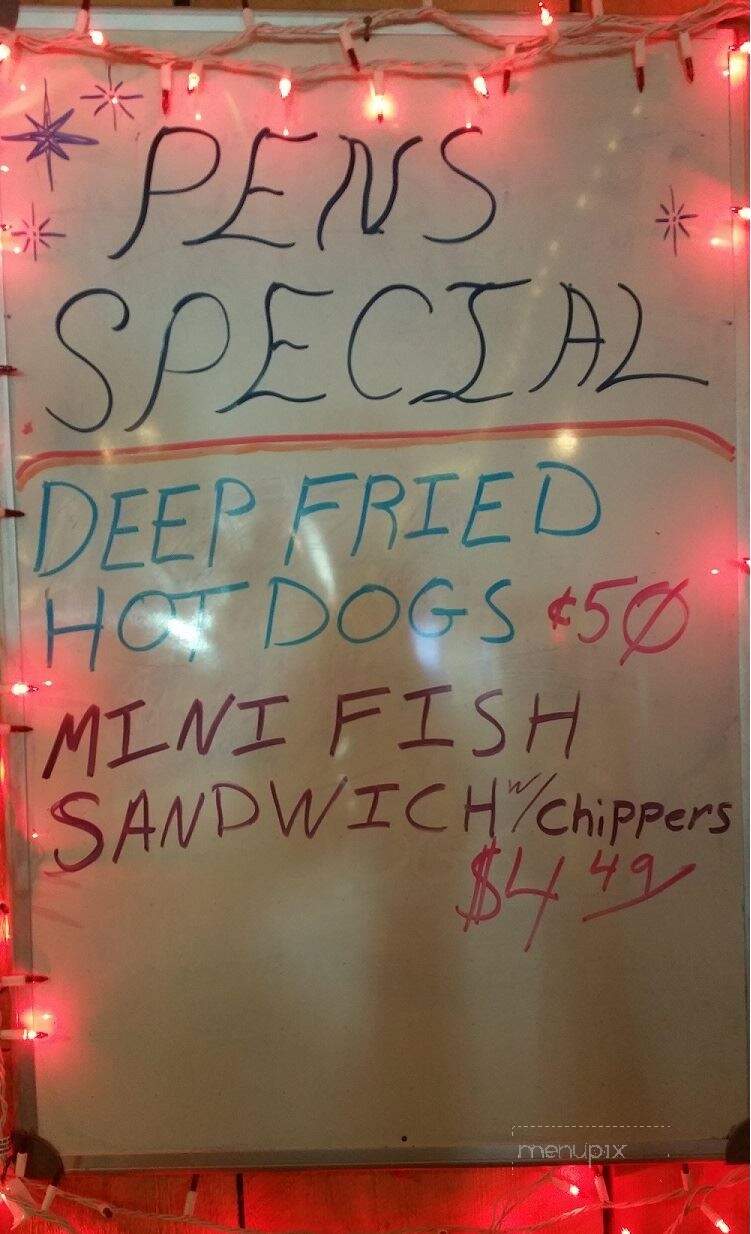 PENS
SPECIAL
DEEP FRIED
HOT DOGS ¢50
MINI FISH
SANDWICH w/chippers
$4 49
menupix